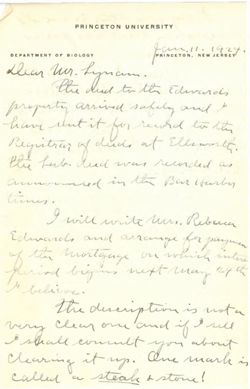 PRINCETON UNIVERSITY
DEPARTMENT OF BIOLOGY
PRINCETON, NEW JERSEY
Jan. 11. 1924.
Dear Mr. Lynam.
The deed to the Edwards
property arrived safely and I
have sent it for record to the
Registrar of deeds at Ellsworth.
The deed was recorded as
announced in the Bar Harbor
times.
I will write Mrs. Rebecca
Edwards and arrange for payment
of the mortgage on which
period begins next May
I believe.
The description is not a
very clear one and if I sell
I shall consult you about
clearing it up. One mark is
called a steak + stone!